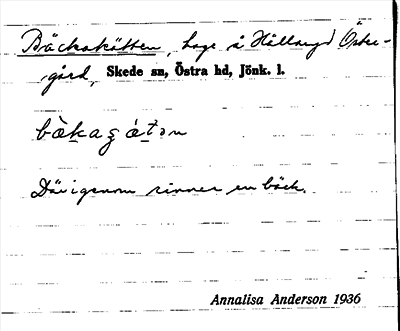 Bäckakätten, hage å Hållanyd Östre-
gård, Skede sn, Östra hd, Jönk. l.
Därigenom rinner en bäck.
Annalisa Anderson 1936